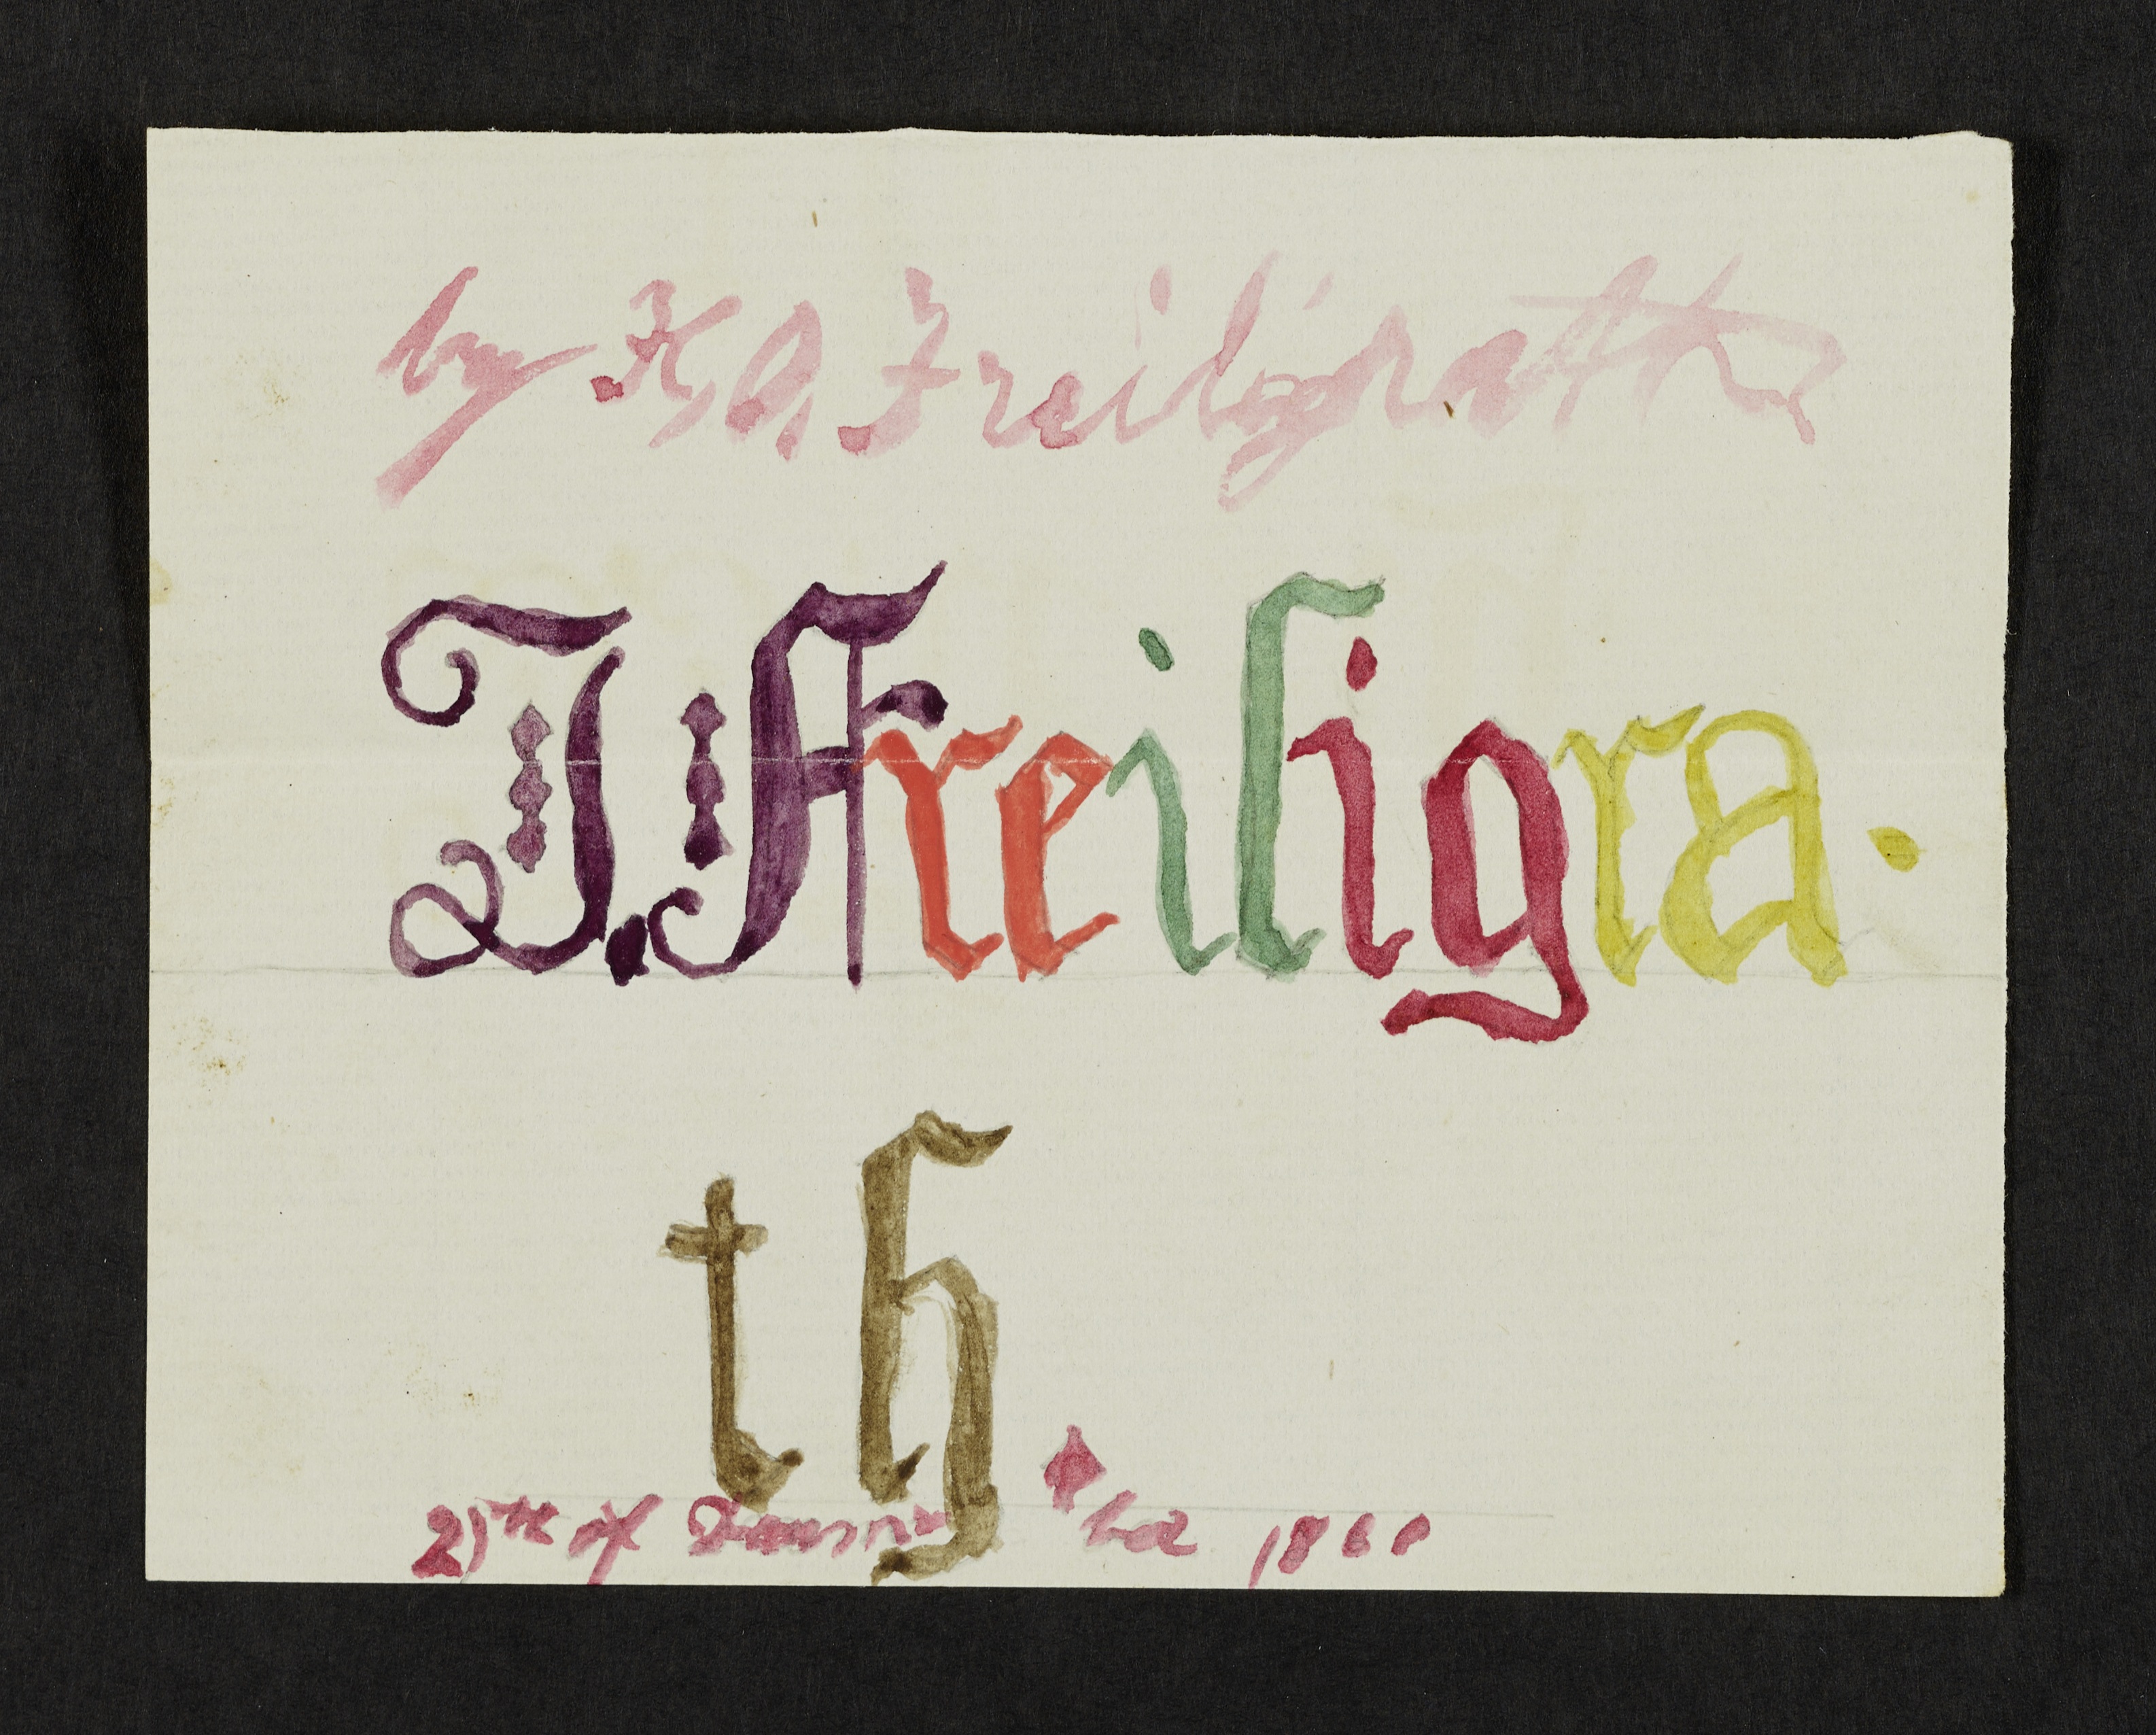 by K, O, Freiligrath
I. Freiligra-
th.
25th of Decem ber 1860